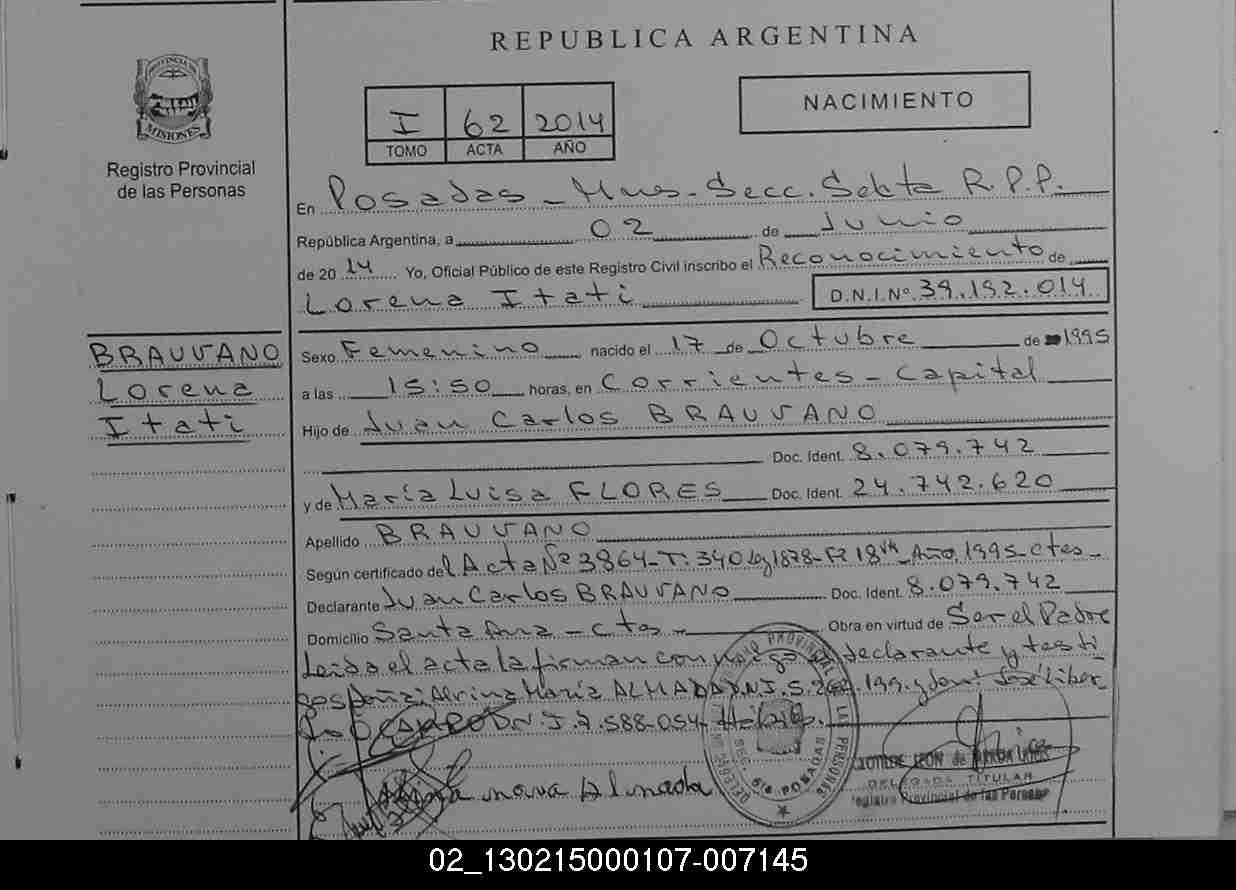 REPUBLICA ARGENTINA
PROVINCIA DE
MISIONES
Registro Provincial
de las Personas
I 62 2014
TOMO ACTA AÑO
NACIMIENTO
En Posadas - Mnes - Secc. Sexta R.P.P.
República Argentina, a 02 de Junio
de 2014 Yo, Oficial Público de este Registro Civil inscribo el Reconocimiento de
Lorena Itati D.N.I.Nº 39.192.014
BRAUVANO
Lorena
Itati
Sexo Femenino nacido el 17 de Octubre de 1995
a las 15:50 horas, en Corrientes - Capital
Hijo de Juan Carlos BRAUVANO
Doc. Ident. 8.079.742
y de María Luisa FLORES Doc. Ident. 24.742.620
Apellido BRAUVANO
Según certificado del Acta Nº 3864 - T: 340 Lg 1878 - Fº 18 Año 1995 - Ctes -
Declarante Juan Carlos BRAUVANO Doc. Ident. 8.079.742
Domicilio Santa Ana - Ctes - Obra en virtud de Ser el Padre
Leida el acta la firman conmigo el declarante y testi
gos María ALMADA D.N.I. 5. 199. y José Liber
DNI 7.588.054
María Almada
SEC. 6ta POSADAS
LEON de
DELEGADA TITULAR
Registro Provincial de las Personas
02_130215000107-007145